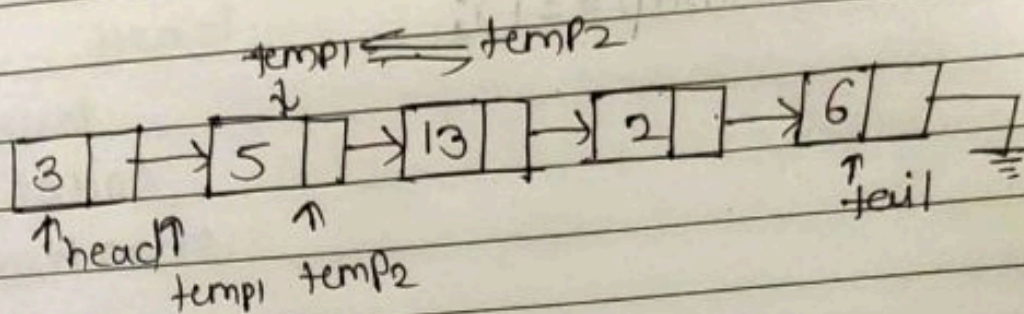 temp1 temp2
3 5 13 2 6
head tail
temp1 temp2